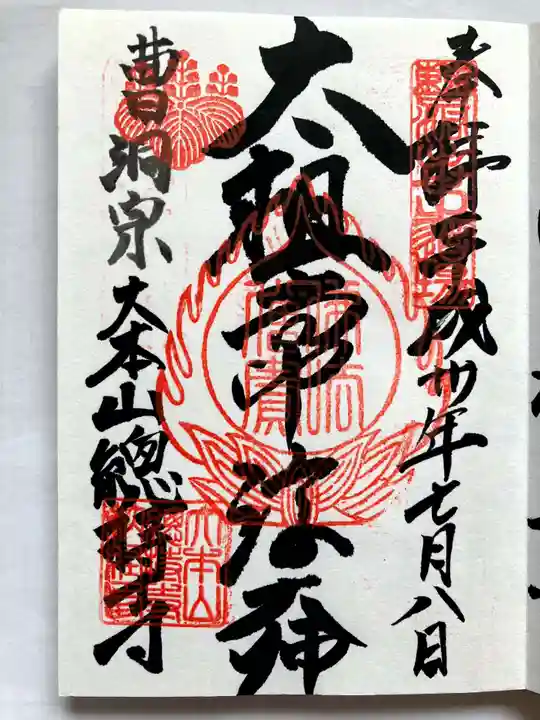 奉拝 平成卅年七月八日
太祖常済大師
曹洞宗 大本山總持寺
佛法僧寶
大本山